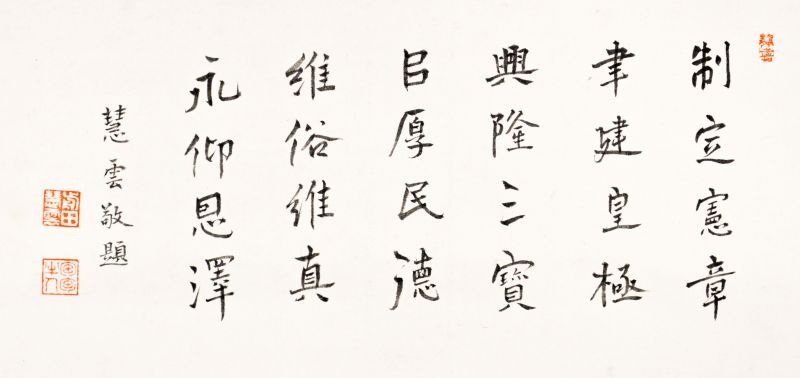 制定憲章
聿建皇極
興隆三寶
㠯厚民德
維俗維真
永仰恩澤
慧雲敬題